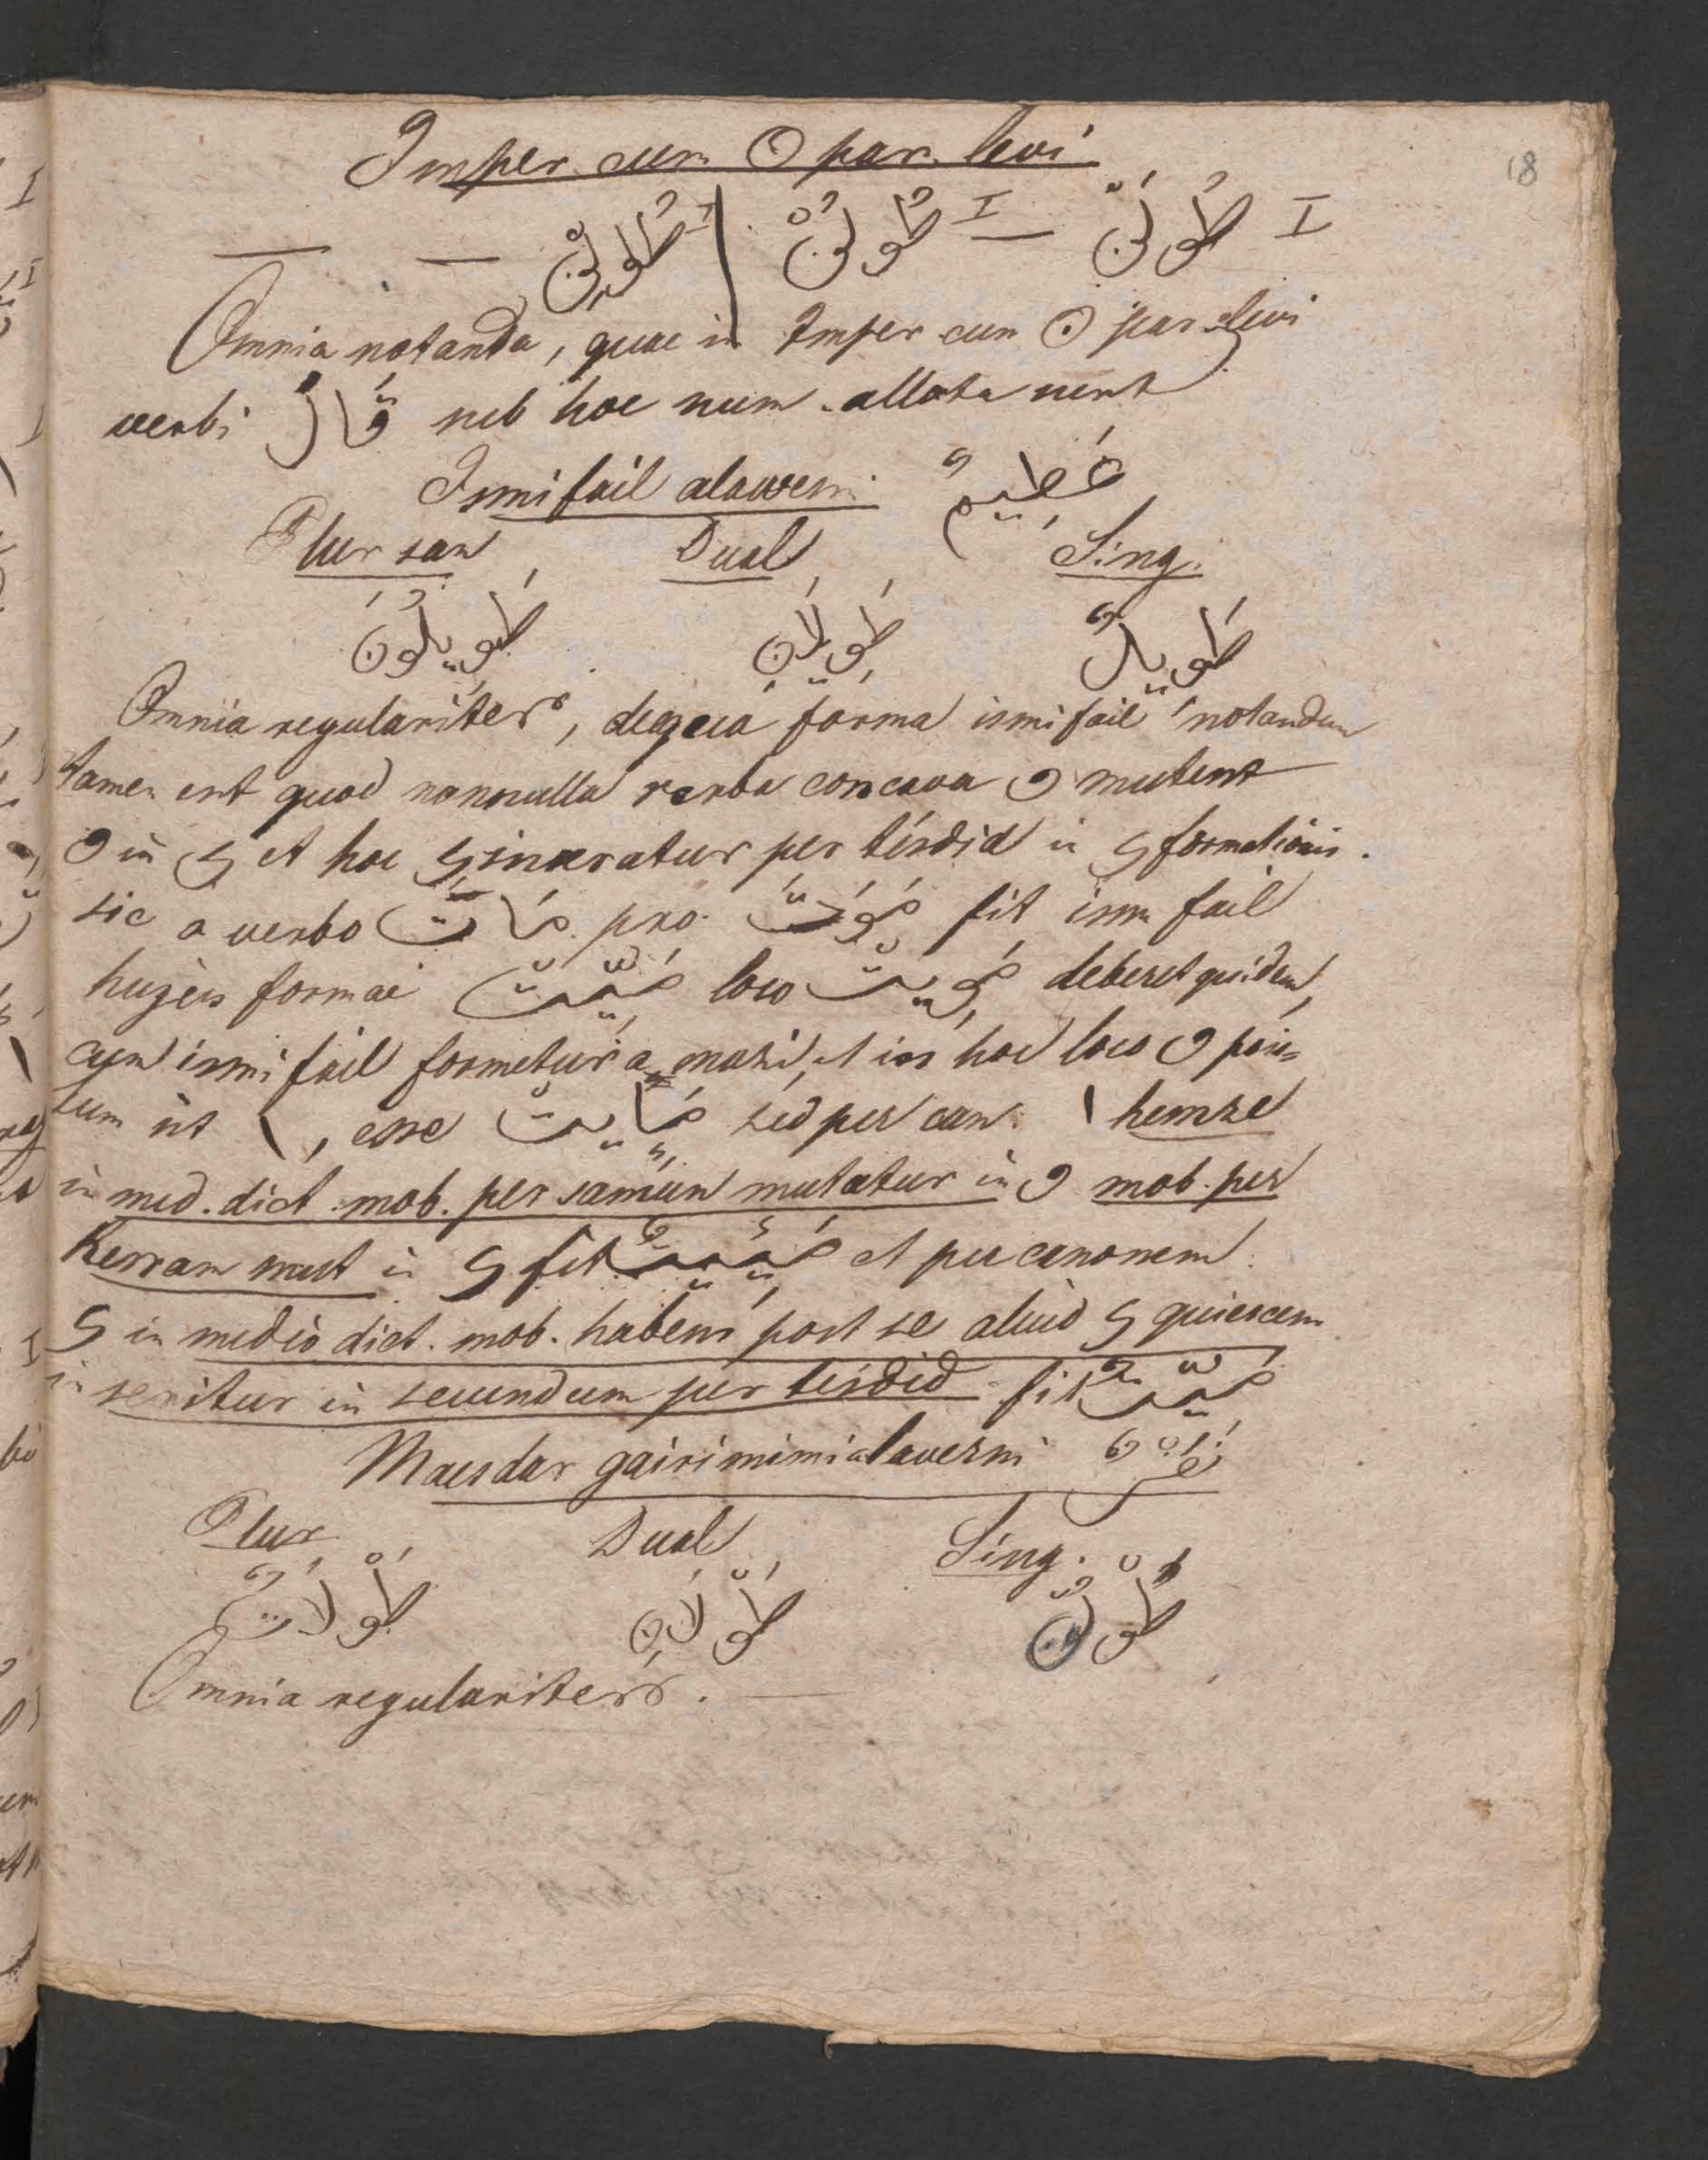 18
Imper cum ن par. levi
I طُولَنْ — I طُولُنْ | I طُولِنْ — —
Omnia notanda, quae in Imper cum ن par levi
verbi قَالَ sub hoc num. allata sunt
Ismi fail alawesni عَظِيمٌ
Sing. Dual Plur san
طَوِيلٌ طَوِيلَانِ طَوِيلُونَ
Omnia regulariter, de qua forma ismi fail notandum
tamen est quod nonnulla verba concava و mutent
و in ی et hoc ی inseratur per tesdid in ی formationis.
sic a verbo مَاتَ pro مَوَتَ fit ism fail
hujus formae مَيِّت loco مَوِيت deberet quidem,
cum ismi fail formetur a mazi, et in hoc loco و posi-
tum sit ا, esse مَاِيت sed per can. ا hemze
in med. dict. mob. per samun mutatur in و mob. per
Kesram mut in ی fit مَيِيْتٌ et per canonem
ی in medio dict. mob. habens post se aliud ی quiescens
inseritur in secundum per tesdid fit مَيِّتٌ
Masdar gairi mimi alavesni نَصْرٌ
Sing. Dual Plur
طَوْلٌ طَوْلَانِ طَوْلَاتٌ
Omnia regulariter. —